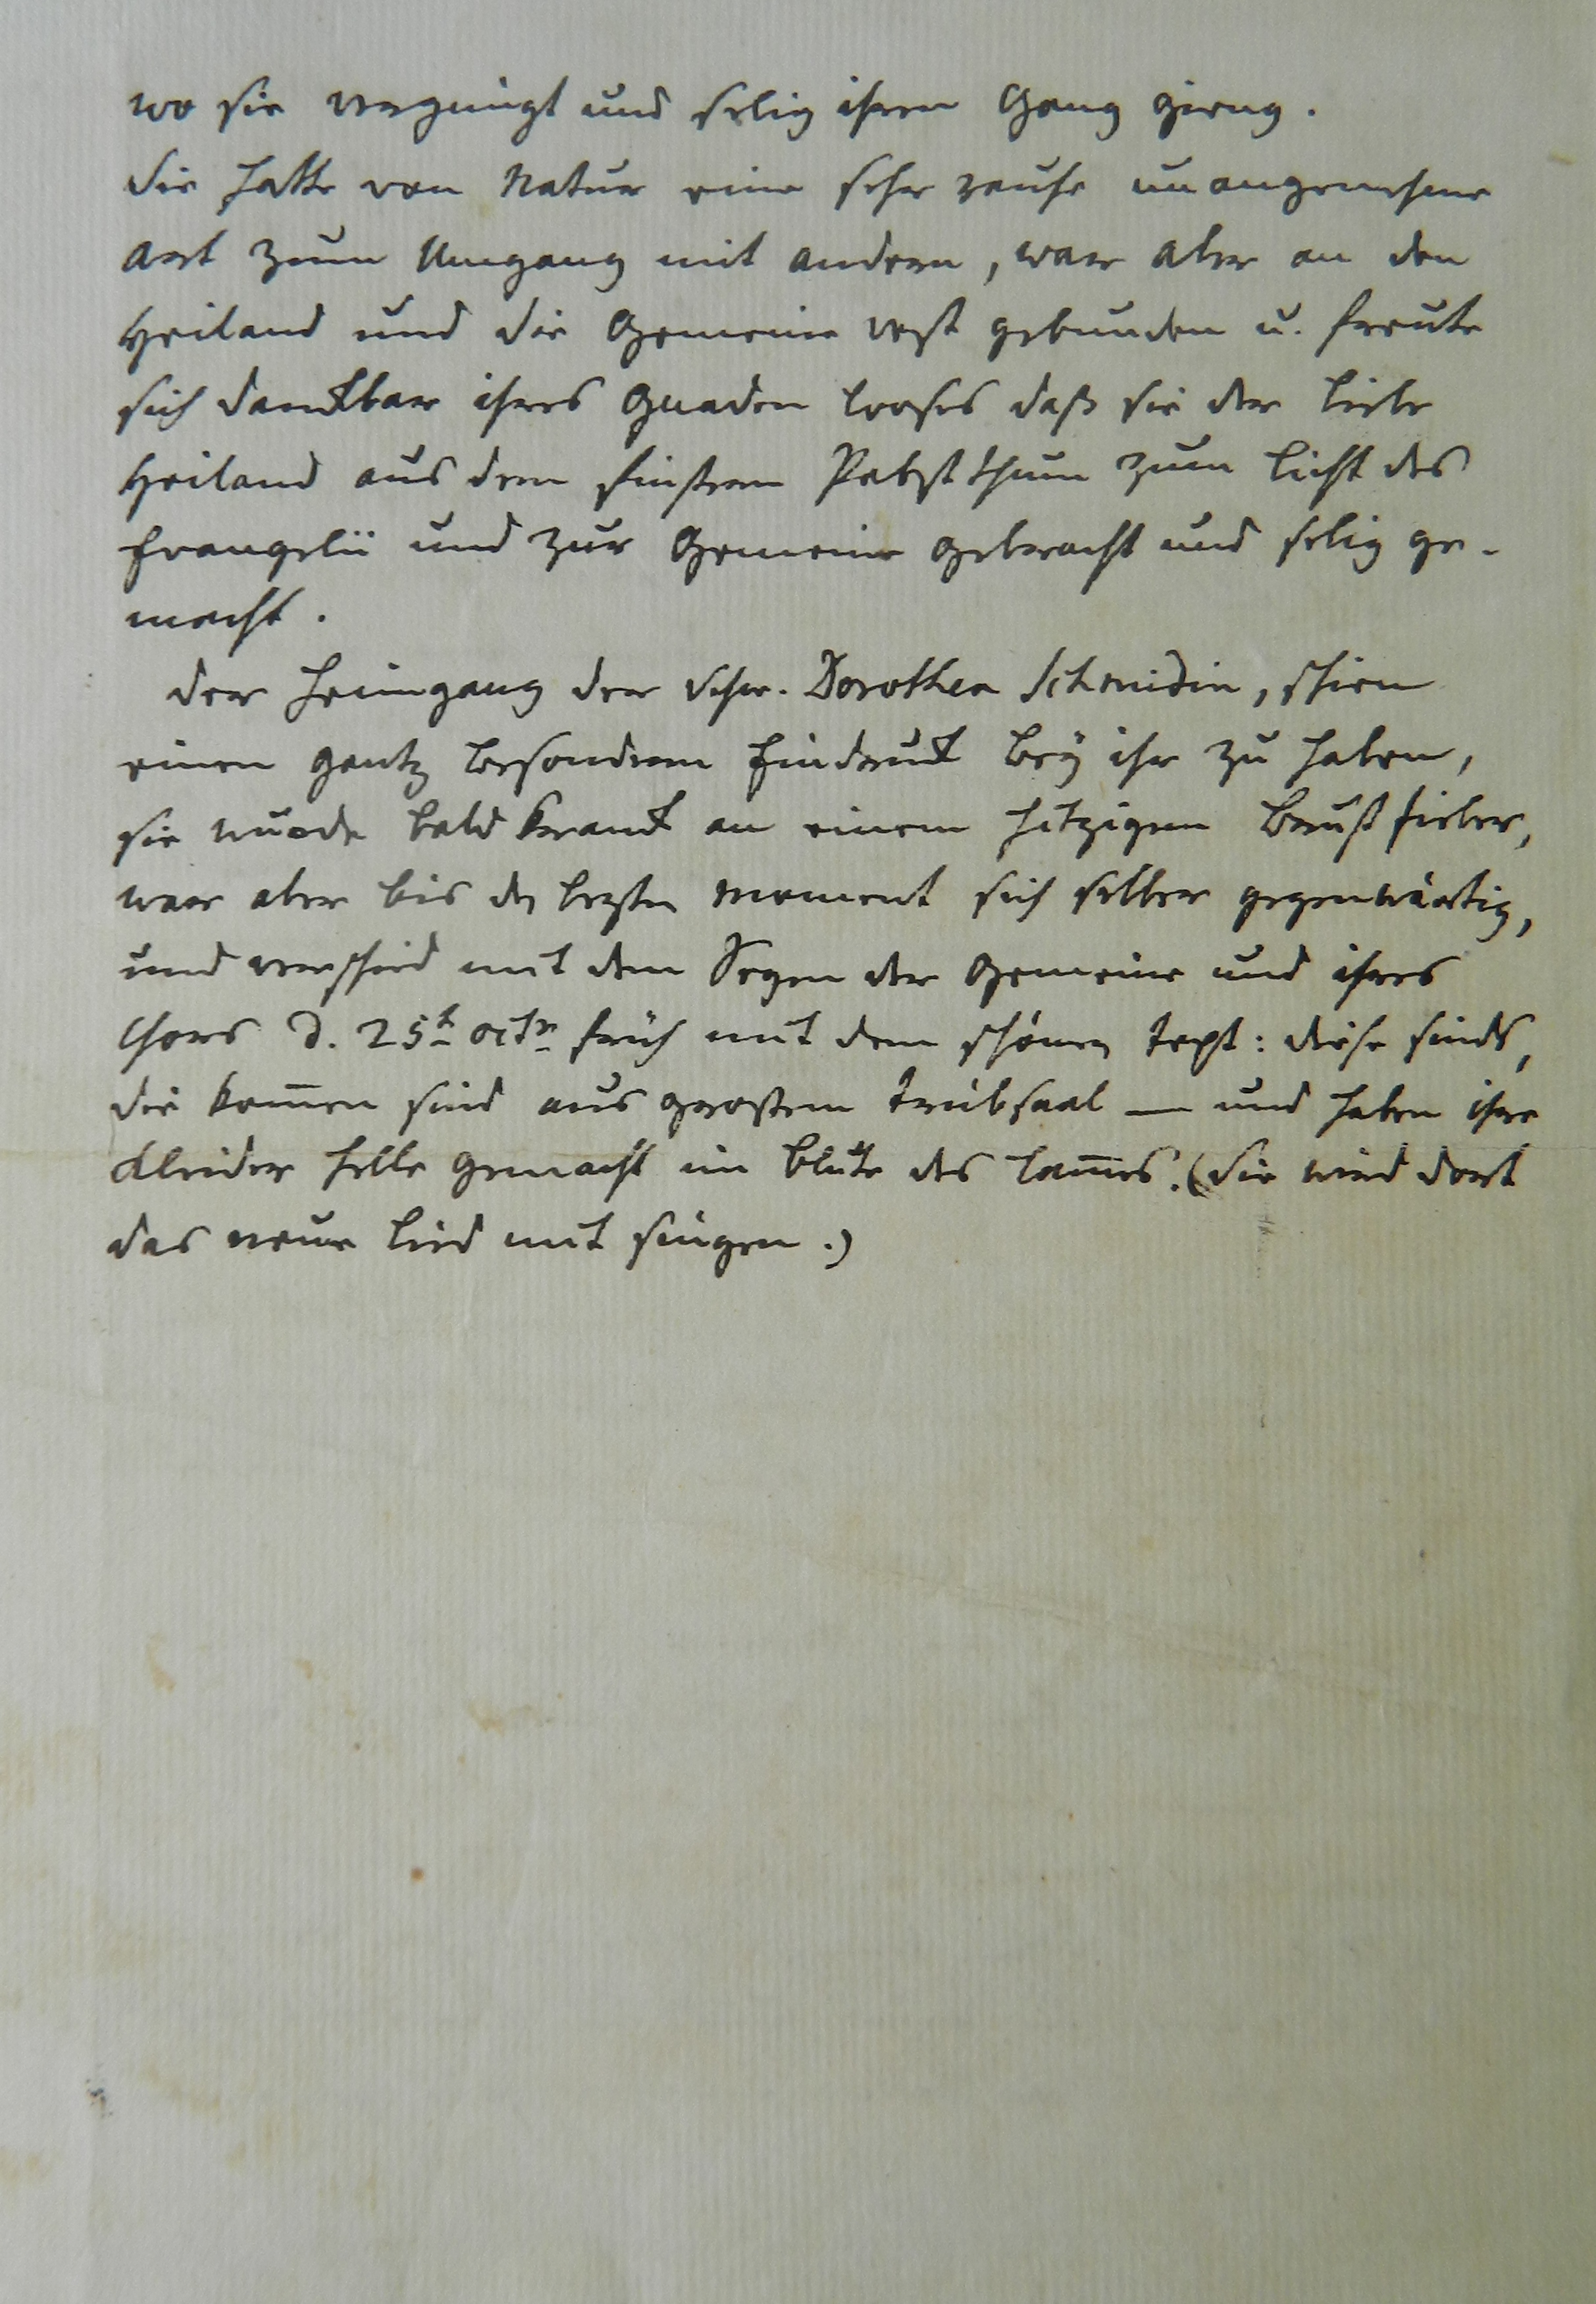 wo sie vergnügt und selig ihren Gang gieng.
Sie hatte von Natur eine sehr rauhe unangenehme
art zum Umgang mit andern, war aber an den
Heiland und die Gemeine vest gebunden u. freute
sich danckbar ihres Gnaden looses daß sie der liebe
Heiland aus dem finstern Pabstthum zum licht des
Evangelii und zur Gemeine gebracht und selig ge-
macht.
der Heimgang der Schw. Dorothea Schmidin, schien
einen gantz besondern Eindruck bey ihr zu haben,
sie wurde bald kranck an einem hitzigen Brustfieber,
war aber bis den lezten moment sich selber gegenwärtig,
und verschied mit dem Segen der Gemeine und ihres
Chors d. 25t octr früh mit dem schönen text: diese sinds,
die kom̅en sind aus grossem trübsaal — und haben ihre
Kleider helle gemacht im blute des lam̅es. (Sie wird dort
das neue lied mit singen.)